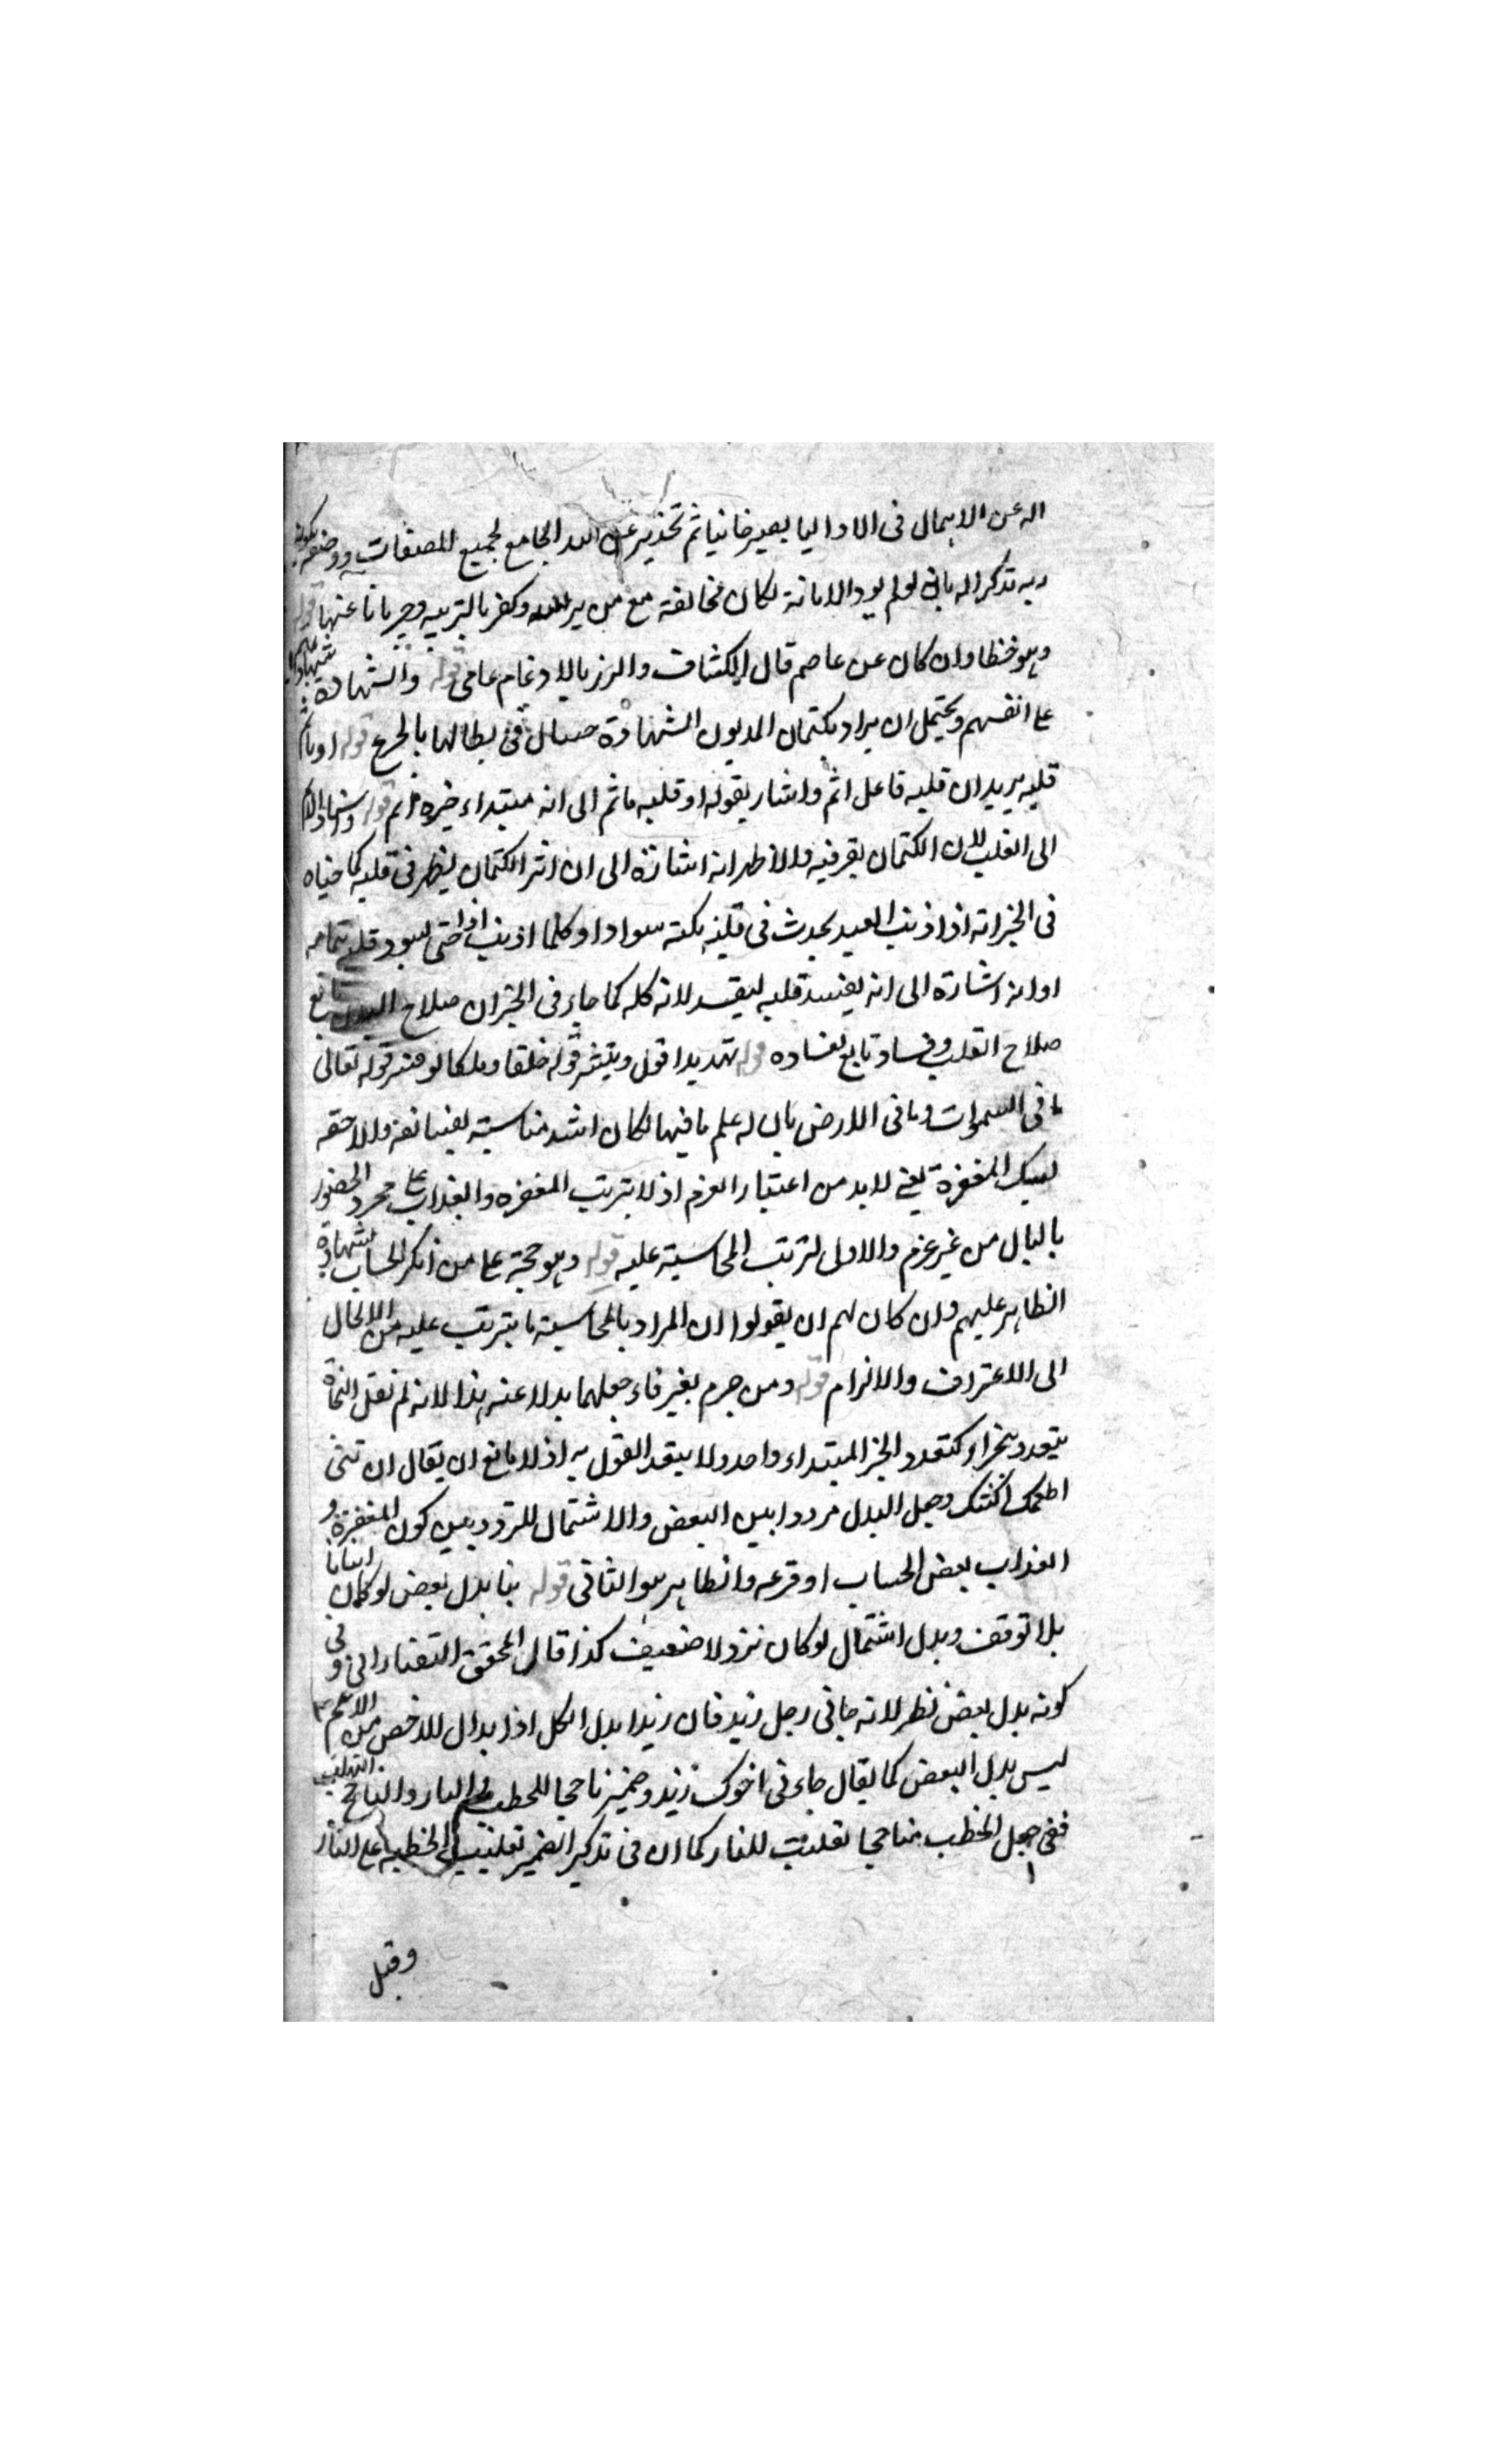 له عن الاهمال فى الادا ليما يصير خانيا ثم تحذير عن الله الجامع لجميع الصفات ووصفه بكونه
ربه تذكر اله بانى لو لم يود الامانة لكان مخالفة مع من يربيه وكفر بالتربيه وجربانا عنها قوله
وهو خطا وان كان عن عاصم قال الكشاف والرز بالادغام عامى قوله والشهادة شهادتهم
على انفسهم ويحتمل ان يراد بكتمان المديون الشهادة فى بطالها بالجرح قوله او يأثم
قلبه يريد ان قلبه فاعل اثم واشار بقوله او قلبه ماثم الى انه مبتداء خبره اثم قوله واسناد الاثم
الى القلب لان الكتمان يقرفيه والاظهر انه اشارة الى ان اثر الكتمان يظهر فى قلبه كما جاء
فى الخبر انه اذا اذنب العبد يحدث فى قلبه نكتة سوادا وكلما اذنب ازداد حتى يسود قلبه بتمامه
او انه اشارة الى انه يفسد قلبه ليفسد لانه كله كما جاء فى الخبر ان صلاح البدن تابع
صلاح القلب وفساده تابع لفساده قوله تهديدا قول ويتنثر قوله خلقا وملكا لو فسر قوله تعالى
ما فى السموات وما فى الارض بان له علم ما فيها لكان اشد مناسبة لفسا نعه واللاحقه
لسبك المغفرة يعنى لا بد من اعتبار العزم اذ لا يترتب المغفره والعذاب على مجرد الخطور
بالبال من غير عزم والاولى لترتب المحاسبة عليه قوله وهو حجة على من انكر الحساب لشهادة
الظاهر عليهم وان كان لهم ان يقولوا ان المراد بالمحاسبة ما يترتب عليه من الالحال
الى الاعتراف والالزام قوله ومن جزم بغير فاء جعلهما بدلا عنه هذا لانه لم نقل النحاة
بتعدد الجزاء كتعدد الخبر المبتداء واحد ولا يبعد القول به اذ لا مانع ان يقال ان تتنى
اطعمك اكسك وجعل البدل مرددا بين البعض والاشتمال للتردد بين كون المغفرة و
العذاب بعض الحساب او فرعه والظاهر هو الثانى قوله بنا بدل بعض لو كان اتيانا
بلا توقف وبدل اشتمال لو كان نزولا ضعيف كذا قال المحقق التفتازانى و فى
كونه بدل بعض نظر لانه جانى رجل زيد فان زيدا بدل الكل اذ ابدال الاخص من الاعم
ليس بدل البعض كما يقال جاءنى اخوك زيد وضمير تاججا للحطب والنار والتاجج التهاب
ففى جعل الحطب متاججا تغليب للنار كما ان فى تذكير الضمير تغليب الحطب على النار
وقيل